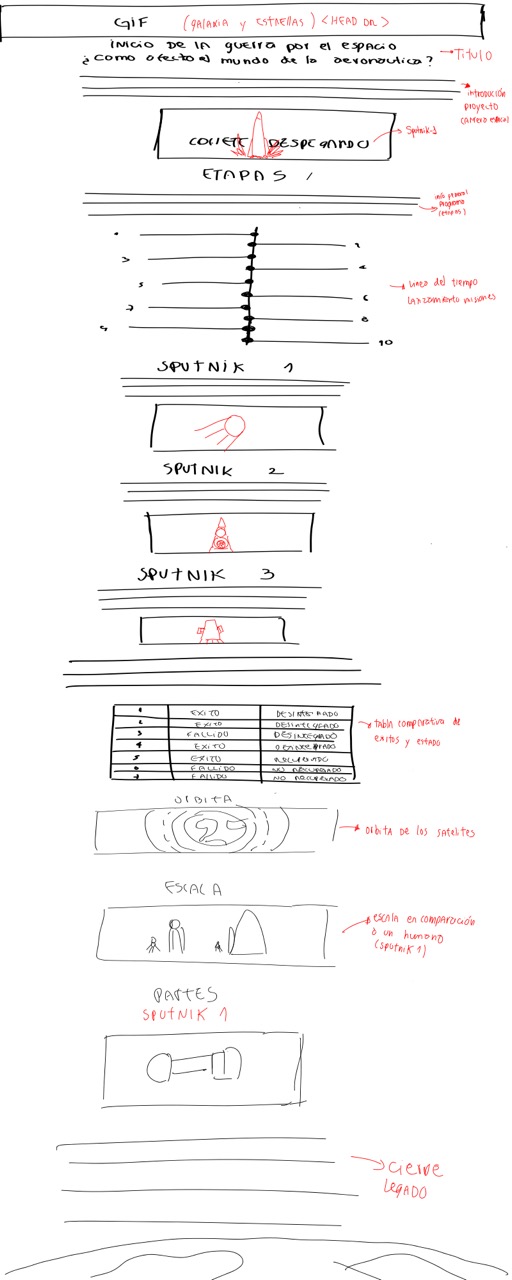 GIF (GALAXIA Y ESTRELLAS) <HEADER>
INICIO DE LA GUERRA POR EL ESPACIO
¿COMO AFECTO EL MUNDO DE LA AERONAUTICA?
TITULO
introducción
proyecto
carrera espacial
COHETE DESPEGANDO
Sputnik-1
ETAPAS
info general
programa
(etapas)
1
2
3
4
5
6
7
8
9
10
linea del tiempo
lanzamiento misiones
SPUTNIK 1
SPUTNIK 2
SPUTNIK 3
1 EXITO DESINTEGRADO
2 EXITO DESINTEGRADO
3 FALLIDO DESINTEGRADO
4 EXITO DESINTEGRADO
5 EXITO RECUPERADO
6 FALLIDO NO RECUPERADO
7 FALLIDO NO RECUPERADO
tabla comparativa de
exitos y estado
ORBITA
ORBITA DE LOS SATELITES
ESCALA
escala en comparación
a un humano
(SPUTNIK 1)
PARTES
SPUTNIK 1
CIERRE
LEGADO